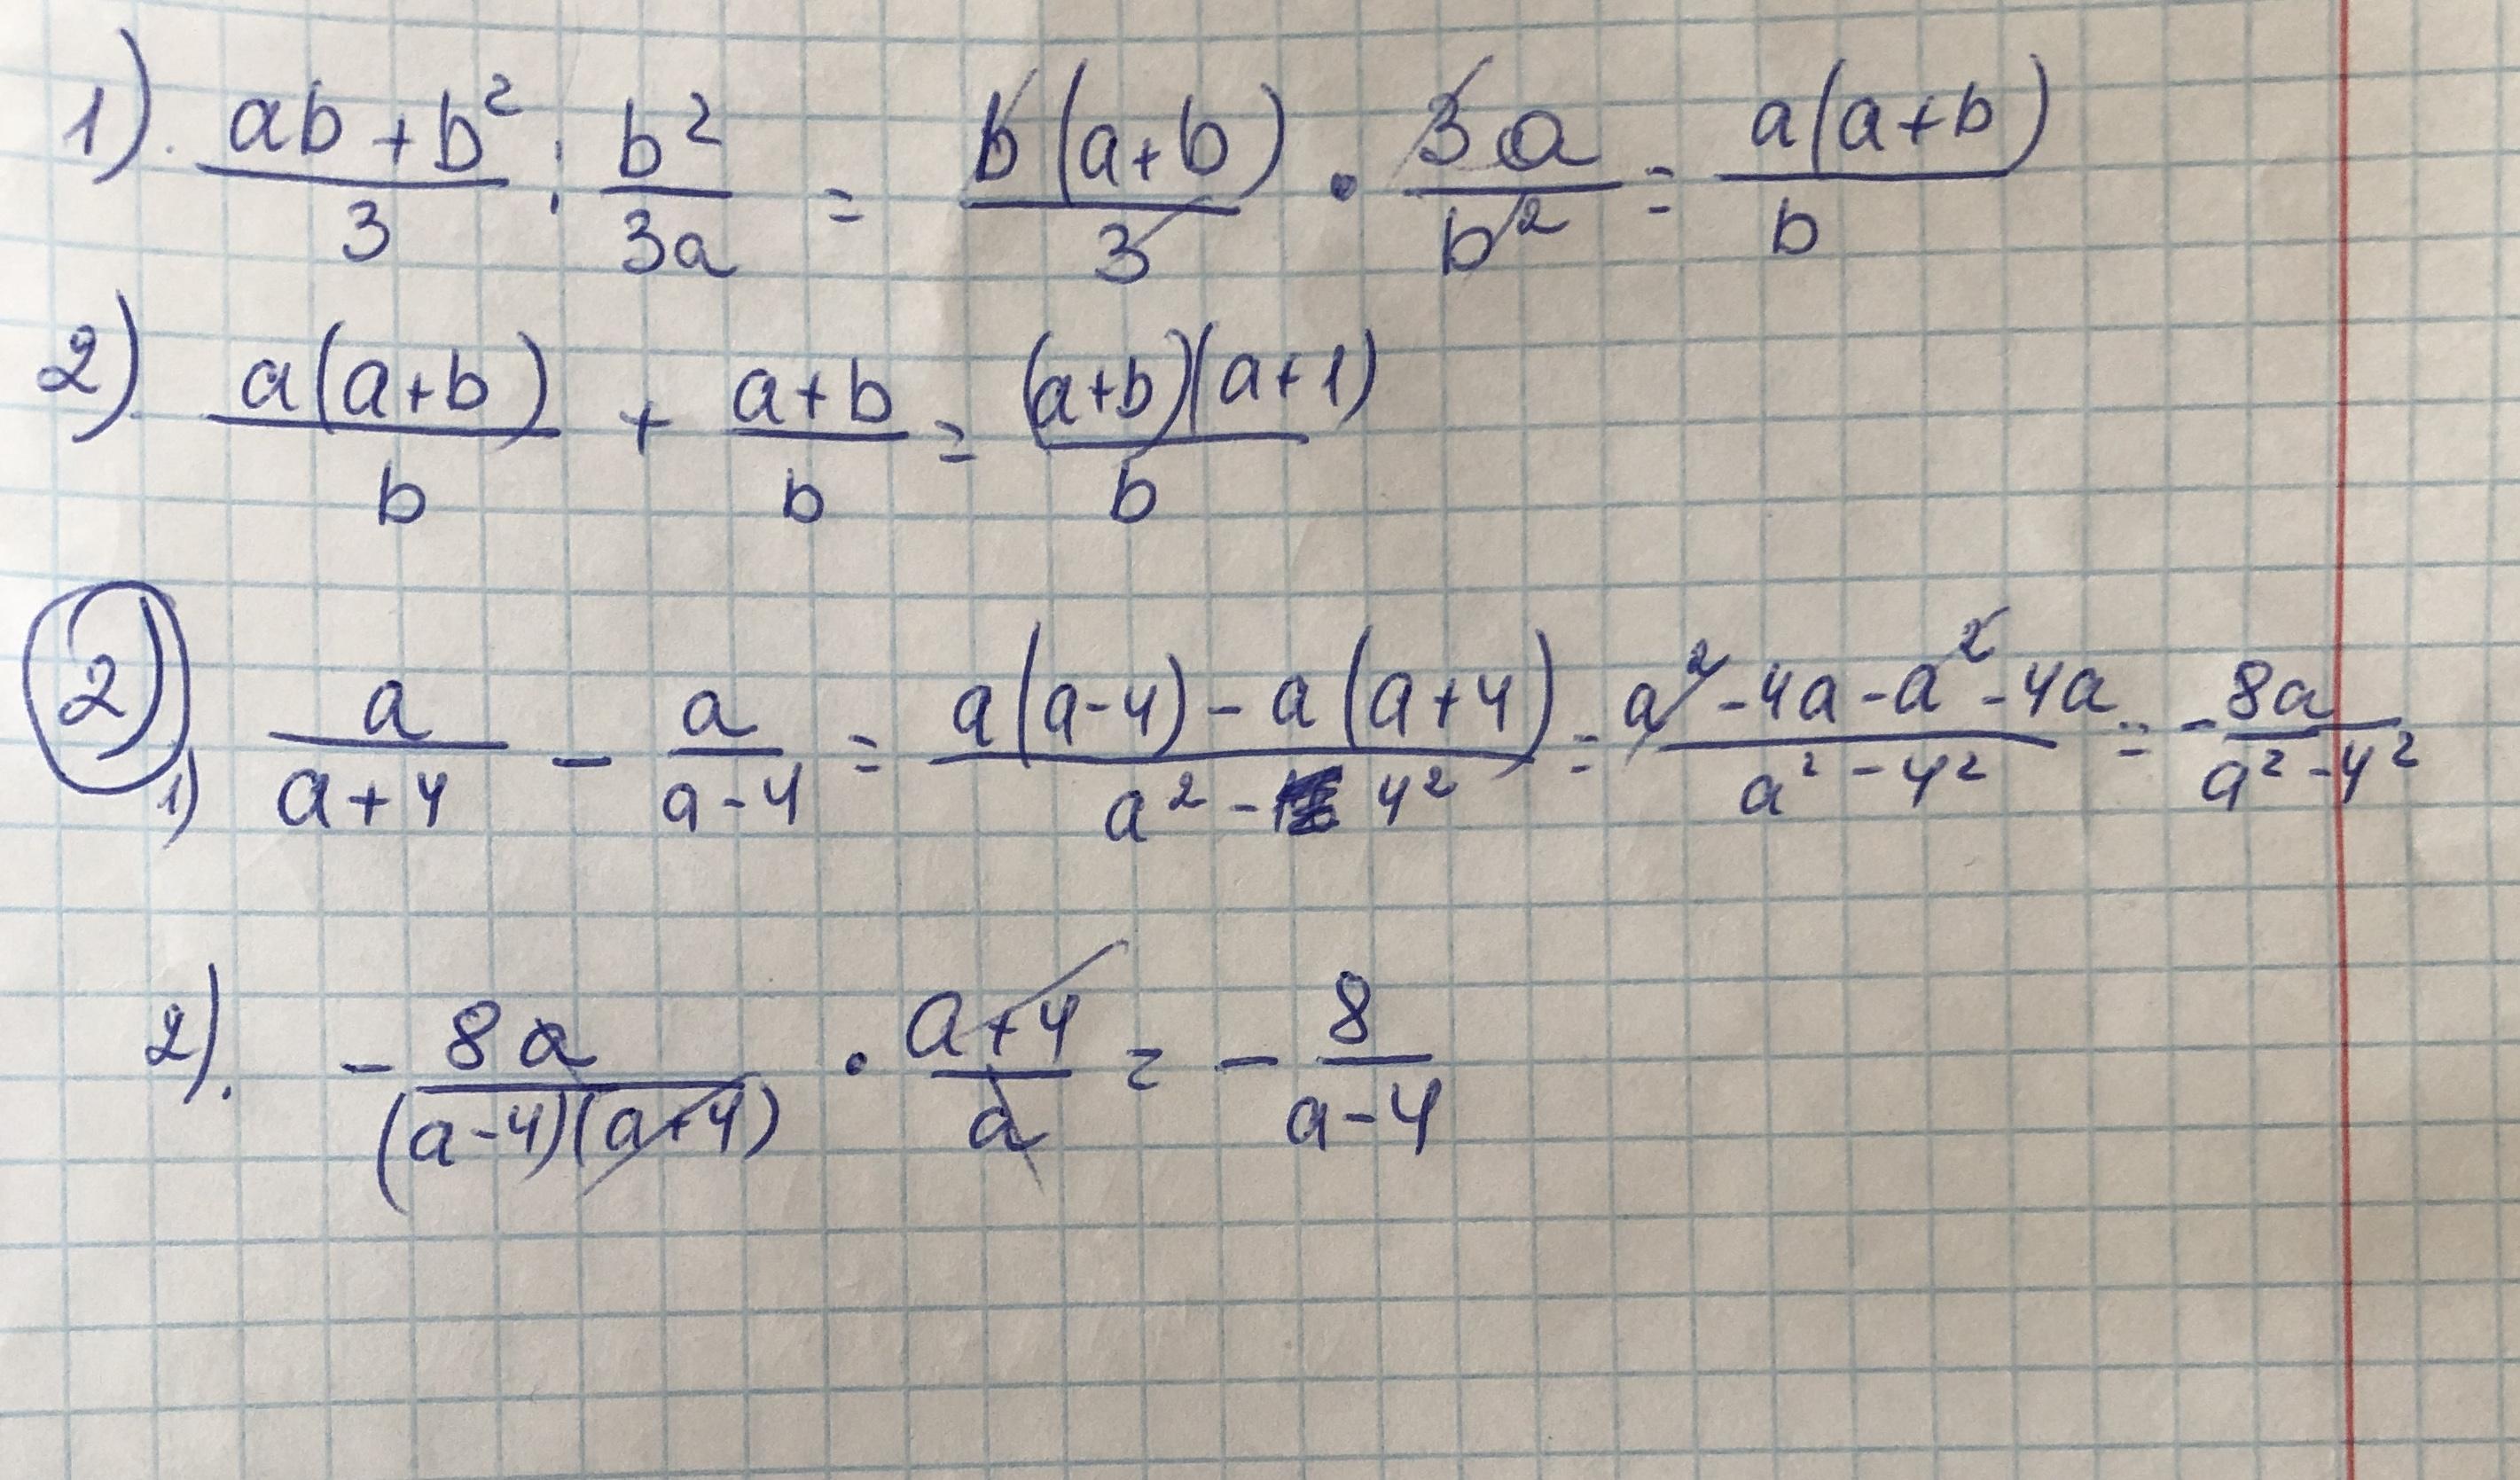 1). (ab+b²)/3 : b²/(3a) = b(a+b)/3 · 3a/b² = a(a+b)/b
2) a(a+b)/b + (a+b)/b = (a+b)(a+1)/b
2) 1) a/(a+4) - a/(a-4) = (a(a-4)-a(a+4))/(a²-4²) = (a²-4a-a²-4a)/(a²-4²) = -8a/(a²-4²)
2). -8a/((a-4)(a+4)) · (a+4)/a = -8/(a-4)